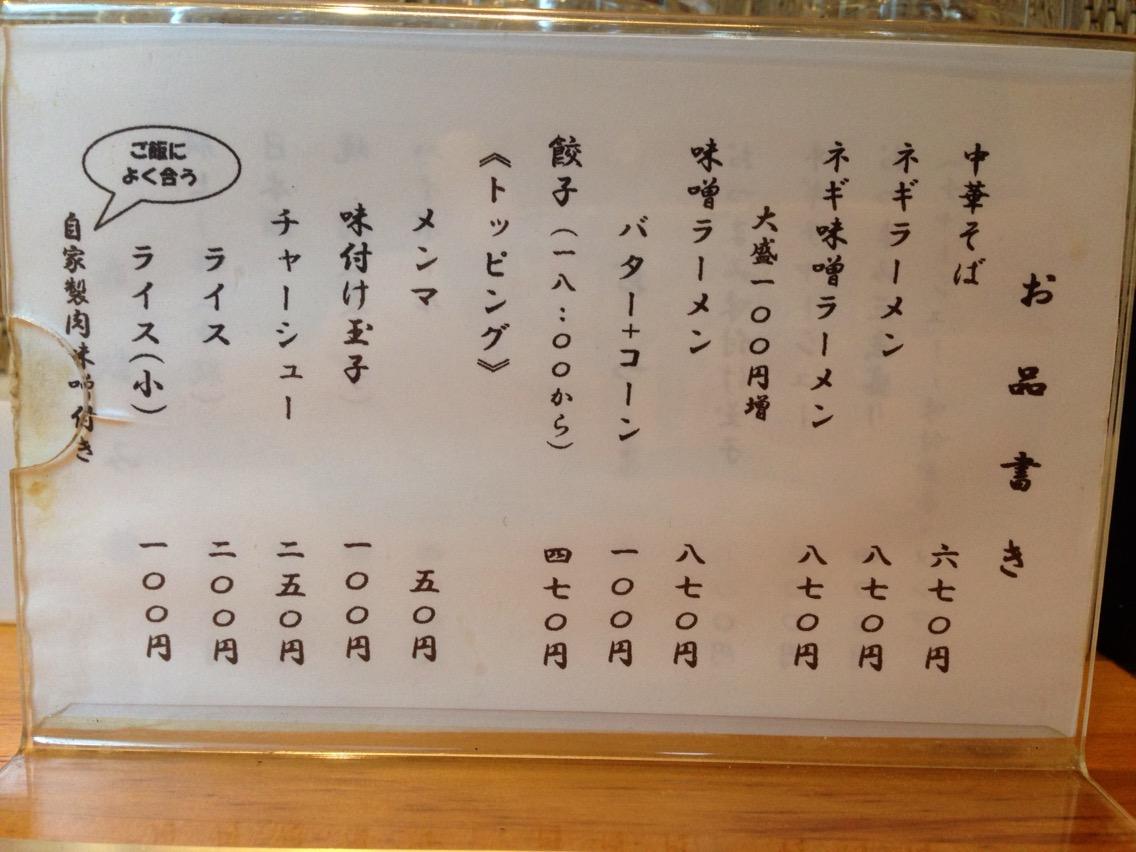 お品書き
中華そば 六七〇円
ネギラーメン 八七〇円
ネギ味噌ラーメン 八七〇円
大盛一〇〇円増
味噌ラーメン 八七〇円
バター+コーン 一〇〇円
餃子(一八:〇〇から) 四七〇円
《トッピング》
メンマ 五〇円
味付け玉子 一〇〇円
チャーシュー 二五〇円
ライス 二〇〇円
ライス(小) 一〇〇円
ご飯に
よく合う
自家製肉味噌付き